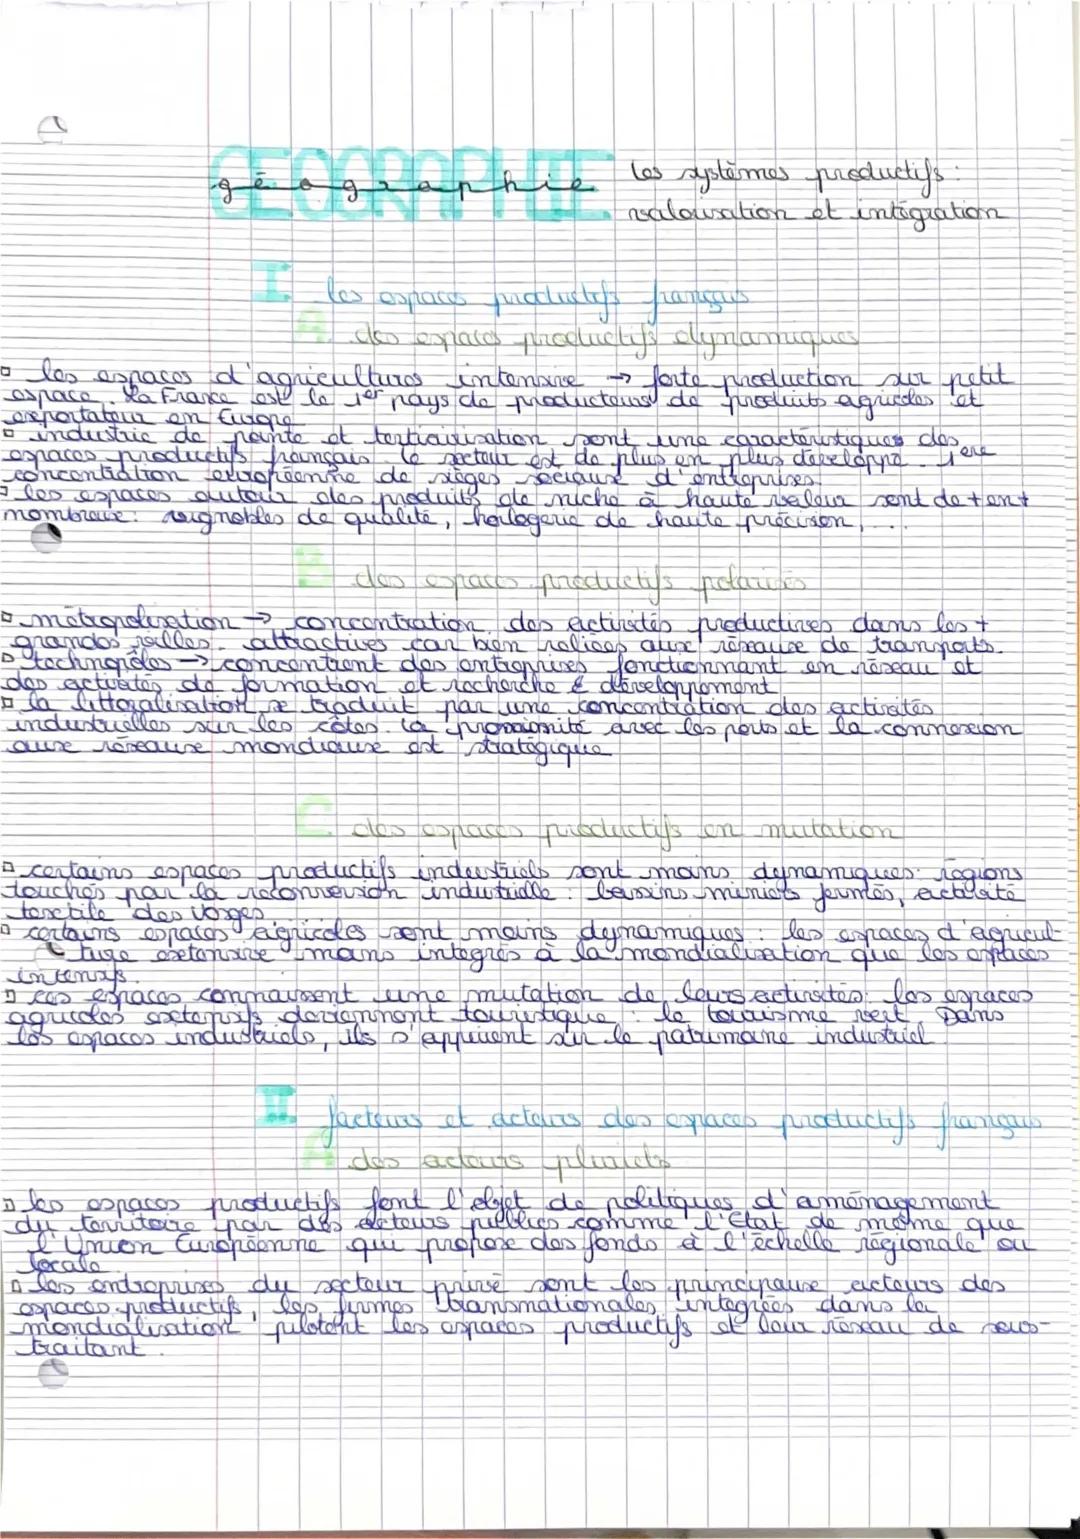 GEOGRAPHIE
géographie les systèmes productifs :
valorisation et intégration
I les espaces productifs français
A. des espaces productifs dynamiques
les espaces d'agricultures intensive → forte production sur petit
espace. La France est le 1er pays de producteurs de produits agricoles et
exportateur en Europe
industrie de pointe et tertiairisation sont une caractéristiques des
espaces productifs français. le secteur est de plus en plus développé. 1ère
concentration européenne de sièges sociaux d'entreprises
les espaces autour des produits de niche à haute valeur sont de + en +
nombreux : vignobles de qualité, horlogerie de haute précision, ...
B des espaces productifs polarisés
métropolisation → concentration des activités productives dans les +
grandes villes. attractives car bien reliées aux réseaux de transports.
technopôles → concentrent des entreprises fonctionnant en réseau et
des activités de formation et recherche & développement
la littoralisation se traduit par une concentration des activités
industrielles sur les côtes. la proximité avec les ports et la connexion
aux réseaux mondiaux est stratégique
C des espaces productifs en mutation
certains espaces productifs industriels sont moins dynamiques : régions
touchés par la reconversion industrielle : bassins miniers fermés, activité
textile des Vosges.
certains espaces agricoles sont moins dynamiques : les espaces d'agricul-
ture extensive moins integrés à la mondialisation que les espaces
intensifs.
ces espaces connaissent une mutation de leurs activités : les espaces
agricoles extensifs deviennent touristique : le tourisme vert. Dans
les espaces industriels, ils s'appuient sur le patrimoine industriel
II facteurs et acteurs des espaces productifs français
A des acteurs pluriels
les espaces productifs font l'objet de politiques d'aménagement
du territoire par des acteurs publics comme l'État de même que
l'Union Européenne qui propose des fonds à l'échelle régionale ou
locale
les entreprises du secteur privé sont les principaux acteurs des
espaces productifs, les firmes transnationales, integrées dans la
mondialisation pilotent les espaces productifs et leur réseau de sous-
traitant.